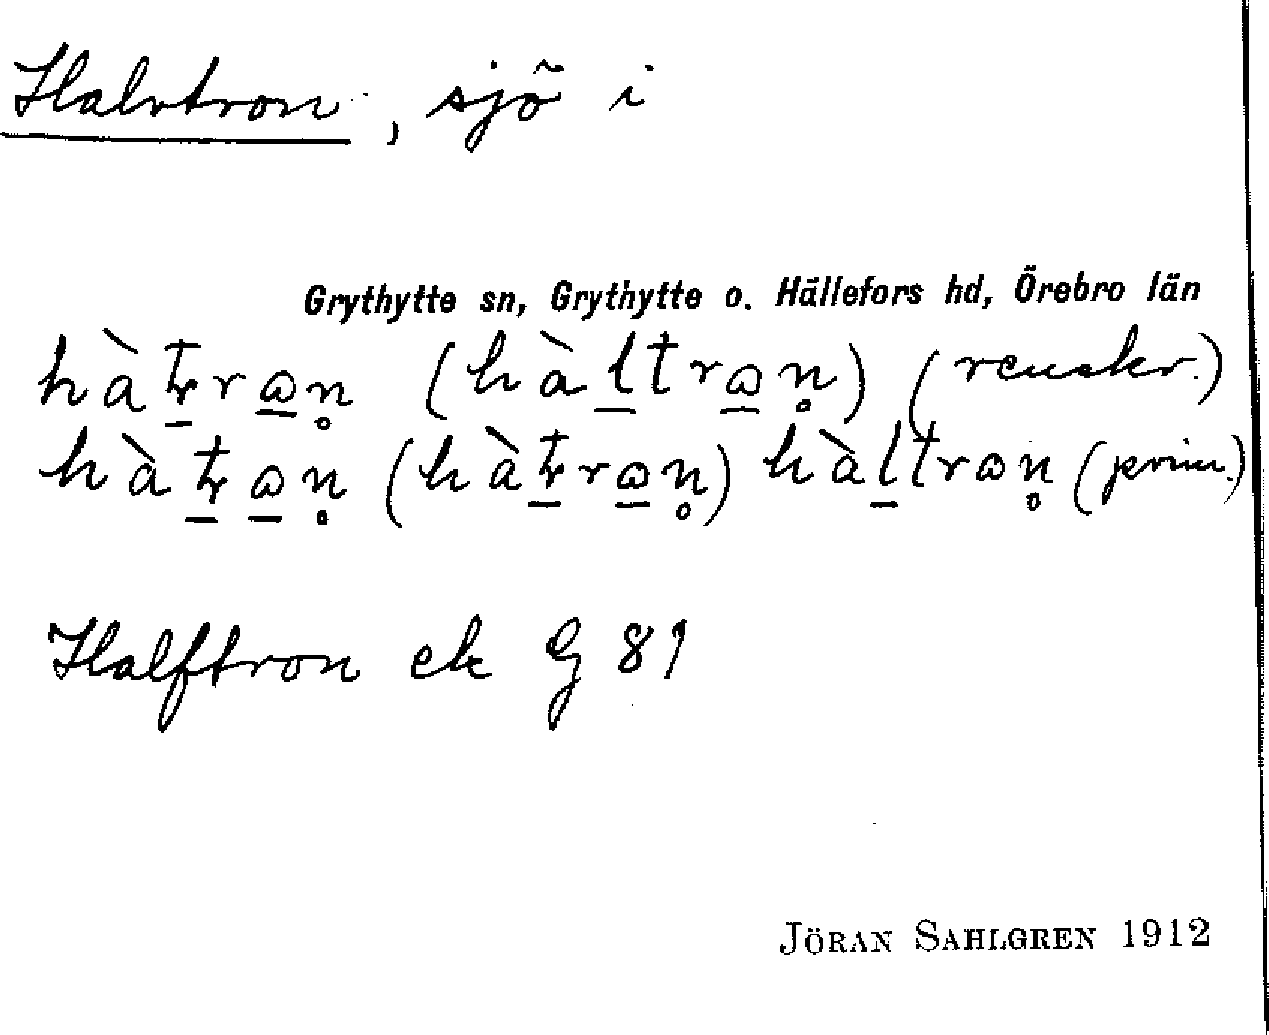 Halvtron, sjö i
Grythytte sn, Grythytte o. Hällefors hd, Örebro län
hàt̠rrꞷ̠n̥ (hàl̠trꞷ̠n̥) (renskr.)
hàt̠rꞷ̠n̥ (hàt̠rrꞷ̠n̥) hàl̠trꞷn̥ (prim.)
Halftron ek G 81
JÖRAN SAHLGREN 1912